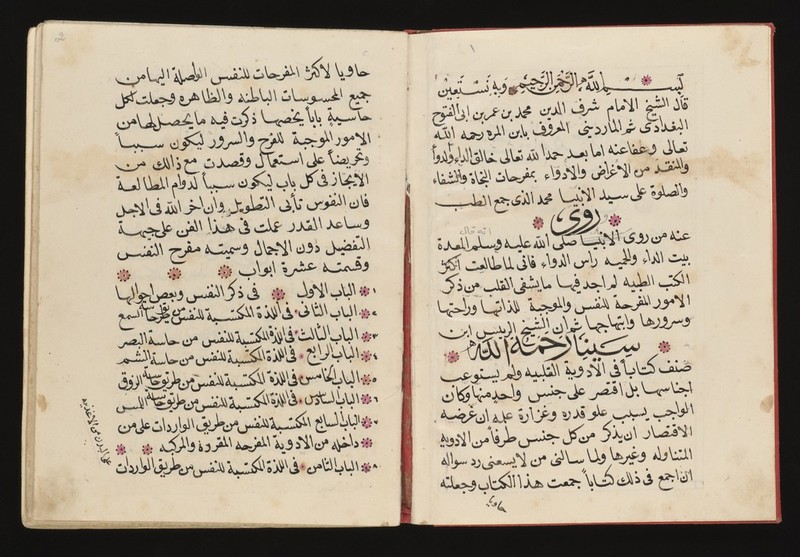 ١
بسم الله الرحمن الرحيم وبه نستعين
قال الشيخ الامام شرف الدين محمد بن عمر بن ابى الفتوح
البغدادى ثم الماردينى المعروف بابن المره رحمه الله
تعالى وعفا عنه اما بعد حمدا لله تعالى خالق الداء والدوآ
والمنقذ من الاغراض والادواء بمفرحات النجاة والشفاء
والصلوة على سيد الانبيا محمد الذى جمع الطب
روى
انه قال
عنه من روى الانبيا صلى الله عليه وسلم المعدة
بيت الداء والحميه راس الدواء فانى لما طالعت اكثر
الكتب الطبيه لم اجد فيها ما يشفى القلب من ذكر
الامور المفرحة للنفس والموجبة للذاتها وراحتها
وسرورها وابتهاجها ثم ان الشيخ الرييس ابن
سينا رحمه الله
صنف كتابا فى الادوية القلبيه ولم يستوعب
اجناسها بل اقتصر على جنس واحد منها وكان
الواجب بسبب علو قدره وغزارة علمه ان غرضه
الاقتصار ان يذكر من كل جنس طرفا من الادويه
المتناوله وغيرها ولما سالنى من لا يسعنى رد سواله
ان اجمع فى ذلك كتابا جمعت هذا الكتاب وجعلته
حاويا
2
حاويا لاكثر المفرحات للنفس الواصلة اليها من
جميع المحسوسات الباطنه والظاهره وجعلت لكل
حاسية بابا يخصها ذكرت فيه ما يحصل لها من
الامور الموجبة للفرح والسرور ليكون سببا
وتحريضا على استعمال وقصدت مع ذالك من
الايجاز فى كل باب ليكون سببا لدوام المطالعة
فان النفوس تأبى التطويل وان اخر الله فى الاجل
وساعد القدر عملت فى هذا الفن على جهة
التفضيل دون الاجمال وسميته مفرح النفس
وقسمته عشرة ابواب
الباب الاول فى ذكر النفس وبعض احوالها
٢ الباب الثانى فى اللذة المكتسبة للنفس من طريق حاسة السمع
٣ الباب الثالث فى اللذة المكتسبة للنفس من حاسة البصر
٤ الباب الرابع فى اللذة المكتسبة للنفس من حاسة الشم
٥ الباب الخامس فى اللذة المكتسبة للنفس من طريق حاسة الذوق
٦ الباب السادس فى اللذة المكتسبة للنفس من طريق حاسة اللمس
٧ الباب السابع المكتسبة للنفس من طريق الواردات على من
داخله من الادوية المفرحه المفردة والمركبه
٨ الباب الثامن فى اللذة المكتسبة للنفس من طريق الواردات